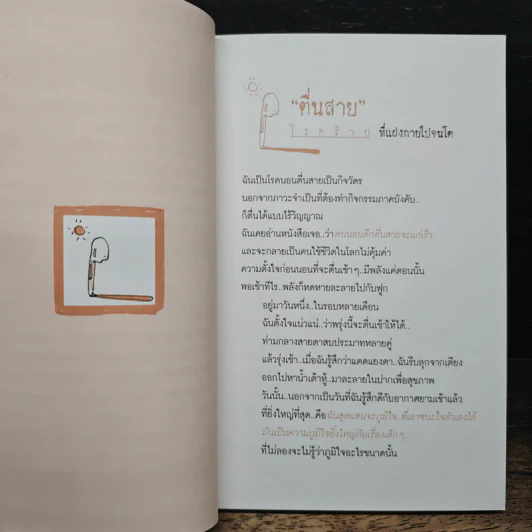 “ตื่นสาย”
โรคร้าย ที่แฝงกายไปจนโต
ฉันเป็นโรคนอนตื่นสายเป็นกิจวัตร
นอกจากภาวะจำเป็นที่ต้องทำกิจกรรมภาคบังคับ..
ก็ตื่นได้แบบไร้วิญญาณ
ฉันเคยอ่านหนังสือเจอ..ว่าคนนอนดึกตื่นสายจะแก่เร็ว
และจะกลายเป็นคนใช้ชีวิตในโลกไม่คุ้มค่า
ความตั้งใจก่อนนอนที่จะตื่นเช้าๆ..มีพลังแค่ตอนนั้น
พอเช้าทีไร..พลังก็หดหายละลายไปกับฟูก
อยู่มาวันหนึ่ง..ในรอบหลายเดือน
ฉันตั้งใจแน่วแน่..ว่าพรุ่งนี้จะตื่นเช้าให้ได้..
ท่ามกลางสายตาสบประมาทหลายคู่
แล้วรุ่งเช้า..เมื่อฉันรู้สึกว่าแดดแยงตา..ฉันรีบลุกจากเตียง
ออกไปหาน้ำเต้าหู้..มาละลายในปากเพื่อสุขภาพ
วันนั้น..นอกจากเป็นวันที่ฉันรู้สึกดีกับอากาศยามเช้าแล้ว
ที่ยิ่งใหญ่ที่สุด..คือฉันสุดแสนจะภูมิใจ..ที่เอาชนะใจตัวเองได้
มันเป็นความภูมิใจยิ่งใหญ่กับเรื่องเล็กๆ..
ที่ไม่ลองจะไม่รู้ว่าภูมิใจอะไรขนาดนั้น